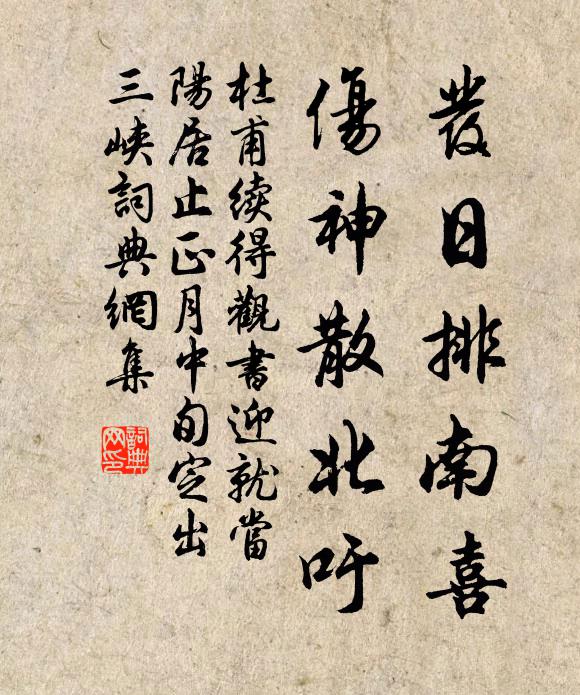 發日排南喜
傷神散北吁
杜甫續得觀書迎就當
陽居止正月中旬定出
三峽詞典網集
詞典
网印